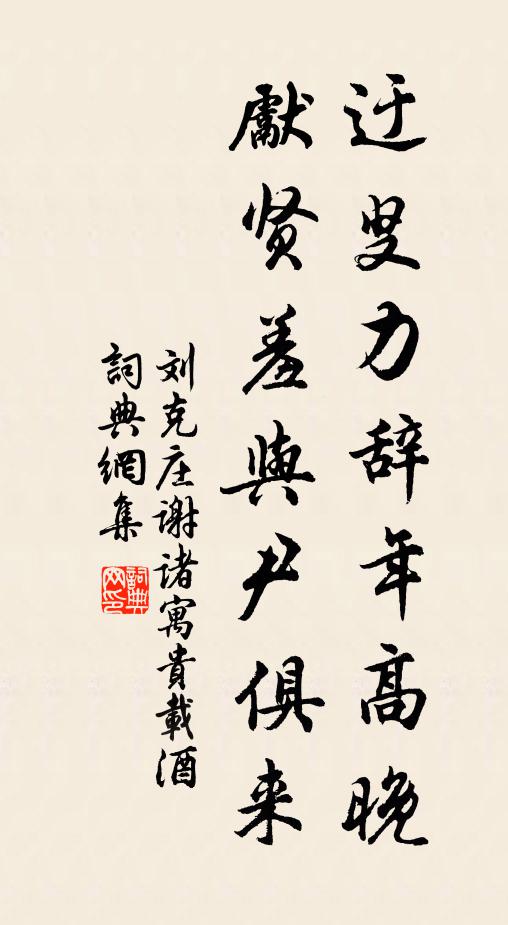 迂叟力辞年高晚
献贤羞与尹俱来
刘克庄谢诸寓贵载酒
詞典網集
詞典网印